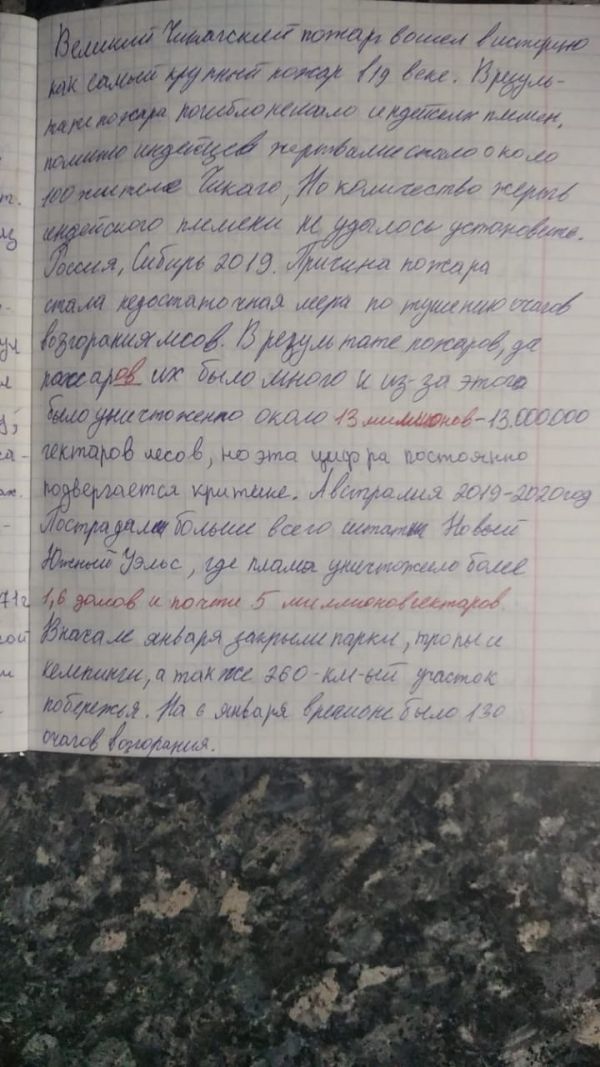 Великий Чикагский пожар вошел в историю
как самый крупный пожар в 19 веке. В резуль-
тате пожара погибло немало индейских племен,
помимо индейцев жертвами стало около
100 жителе Чикаго, Но количество жертв
индейского племени не удалось установить.
Россия, Сибирь 2019. Причина пожара
стала недостаточная мера по тушению очагов
возгорания лесов. В результате пожаров, да
пожаров их было много и из-за этого
было уничтоженно около 13 миллионов - 13.000000
гектаров лесов, но эта цифра постоянно
подвергается критике. Австралия 2019-2020год
Пострадали больше всего штаты Новый
Южный Уэльс, где пламя уничтожило более
71г 1,6 домов и почти 5 миллионов гектаров.
Вначале января закрыли парки, тропы и
кемпинги, а также 260-км-ый участок
побережья. На 6 января в регионе было 130
очагов возгорания.